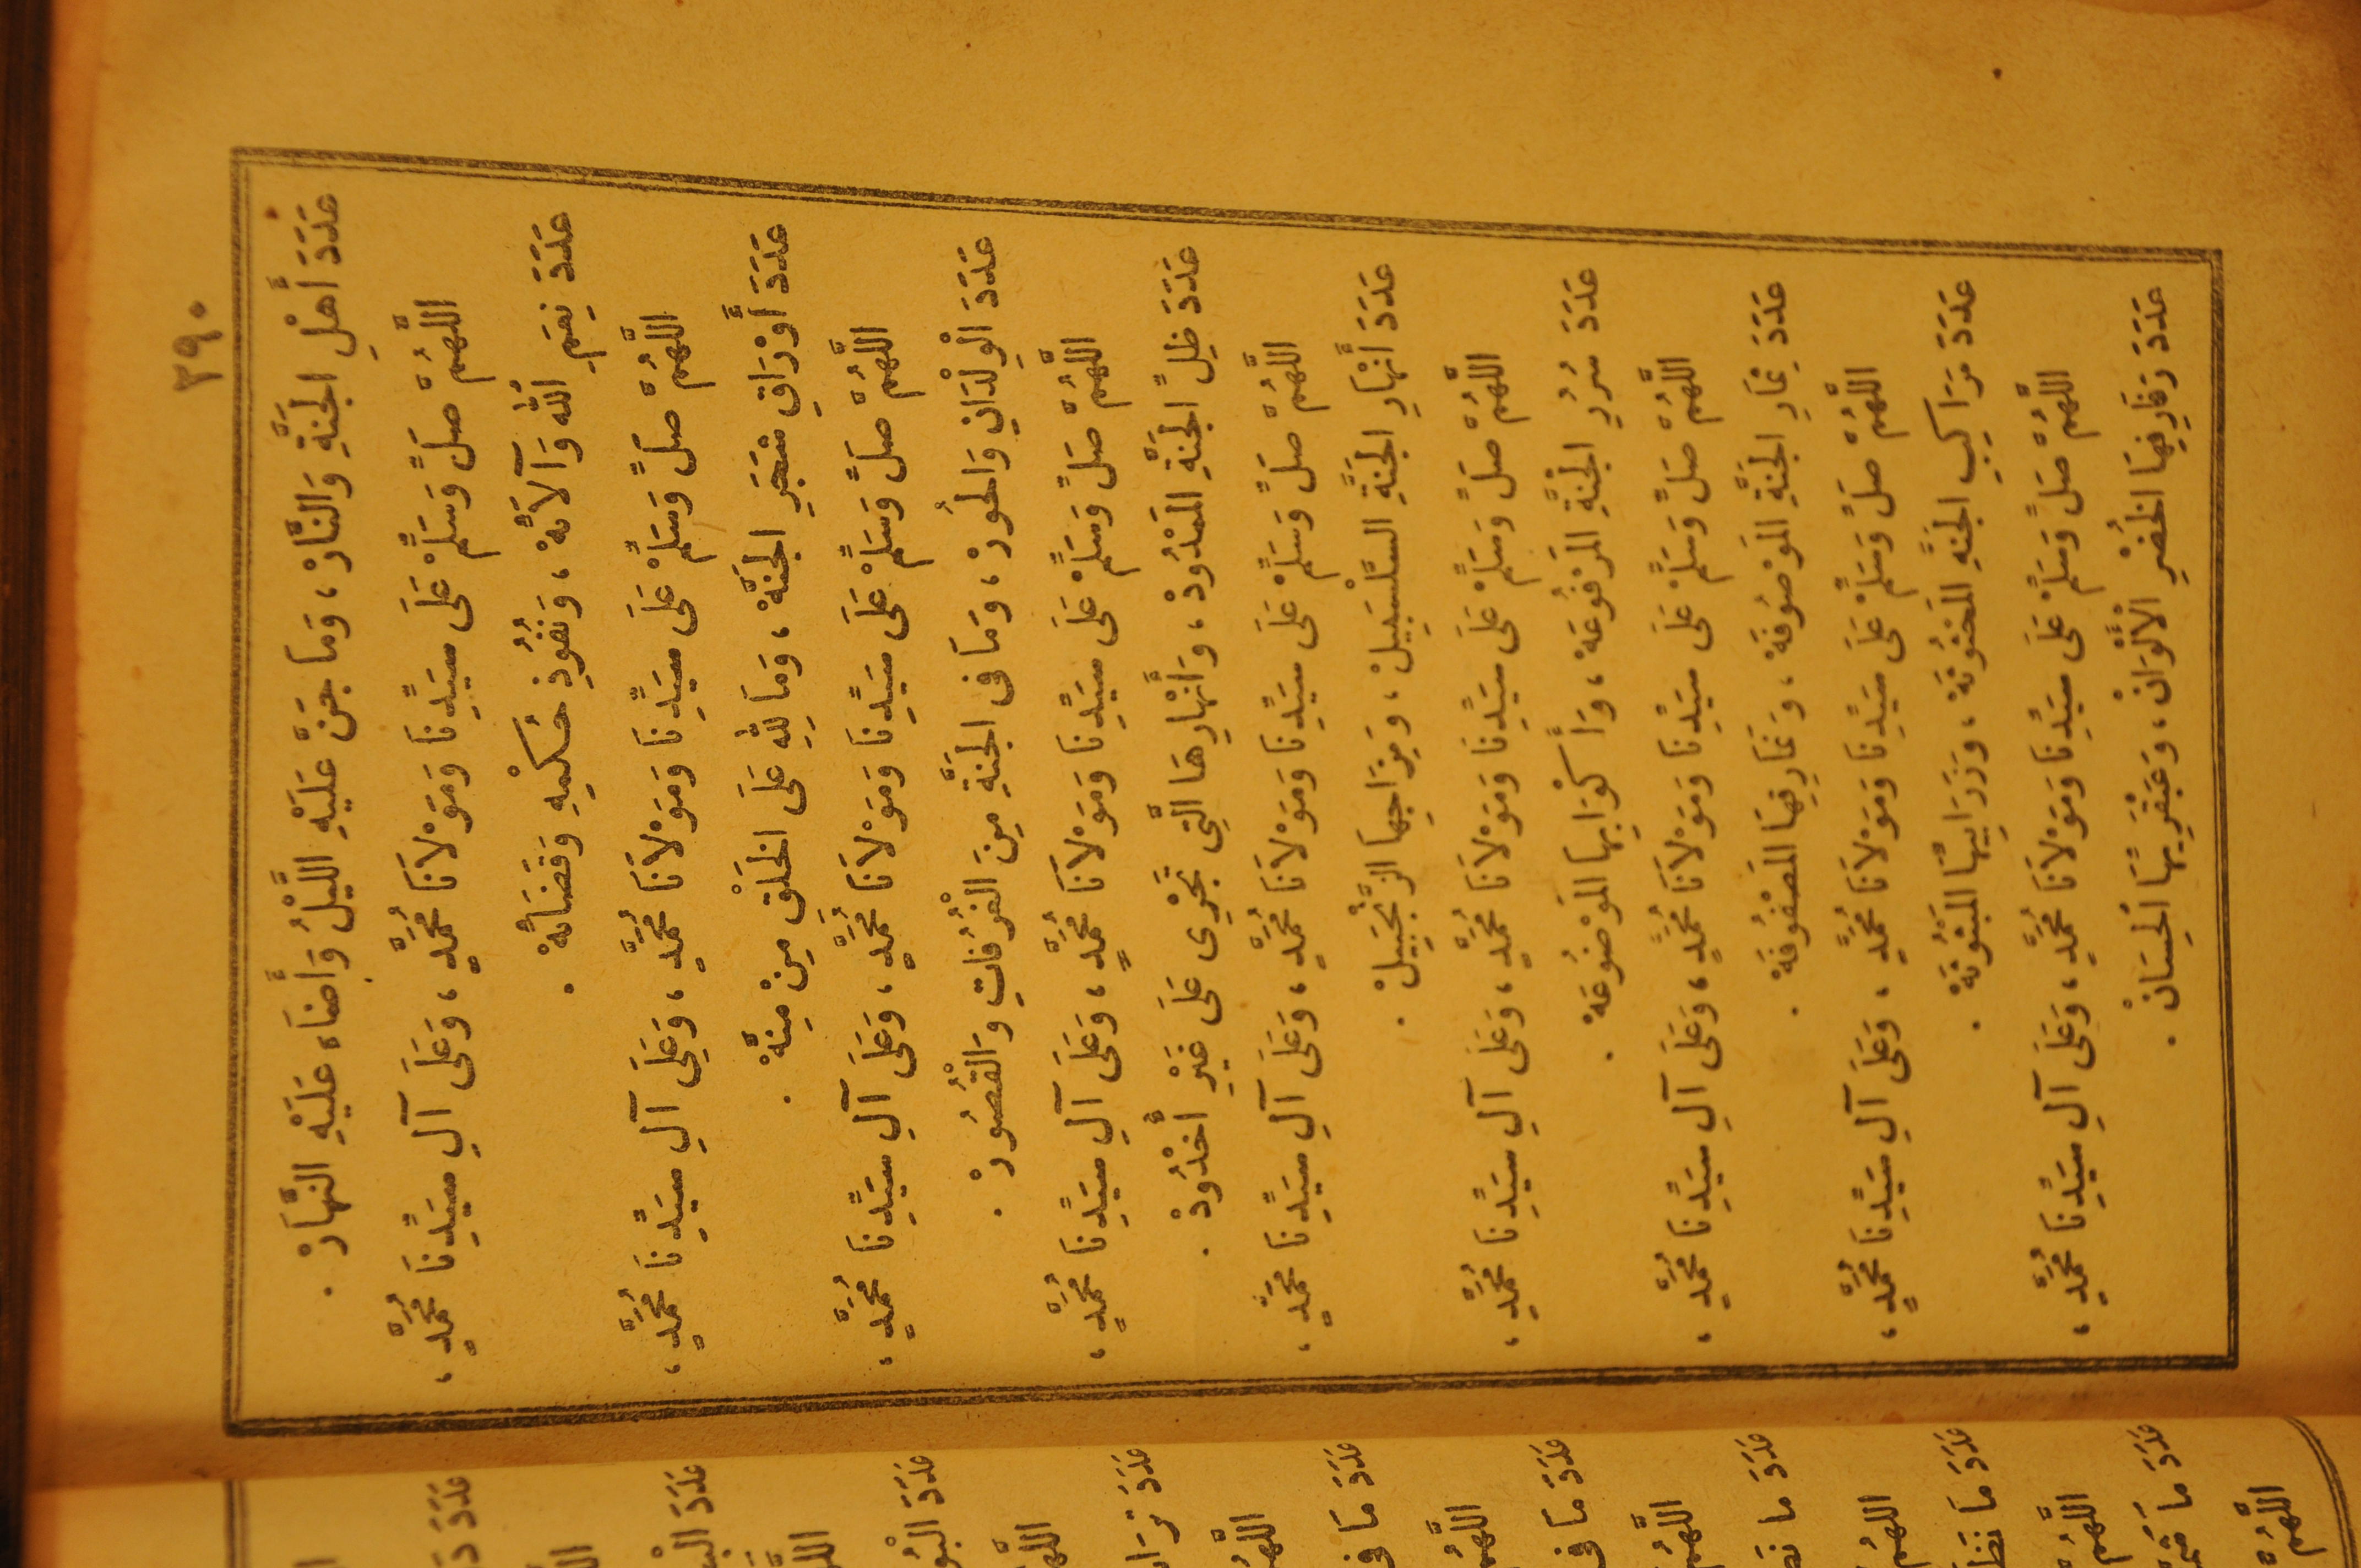 ٢٩٠
عَدَدَ أَهْلِ الْجَنَّةِ وَالنَّارْ، وَمَا جَنَّ عَلَيْهِ اللَّيْلُ وَأَضَاءَ عَلَيْهِ النَّهَارْ.
اللَّهُمَّ صَلِّ وَسَلِّمْ عَلَى سَيِّدِنَا وَمَوْلَانَا مُحَمَّدٍ، وَعَلَى آلِ سَيِّدِنَا مُحَمَّدٍ،
عَدَدَ نِعَمِ اللهِ وَآلَائِهْ، وَنُفُوذِ حُكْمِهِ وَقَضَائِهْ.
اللَّهُمَّ صَلِّ وَسَلِّمْ عَلَى سَيِّدِنَا وَمَوْلَانَا مُحَمَّدٍ، وَعَلَى آلِ سَيِّدِنَا مُحَمَّدٍ،
عَدَدَ أَوْرَاقِ شَجَرِ الْجَنَّهْ، وَمَا لِلهِ عَلَى الْخَلْقِ مِنْ مِنَّهْ.
اللَّهُمَّ صَلِّ وَسَلِّمْ عَلَى سَيِّدِنَا وَمَوْلَانَا مُحَمَّدٍ، وَعَلَى آلِ سَيِّدِنَا مُحَمَّدٍ،
عَدَدَ الْوِلْدَانِ وَالْحُورْ، وَمَا فِى الْجَنَّةِ مِنَ الْغُرُفَاتِ وَالْقُصُورْ.
اللَّهُمَّ صَلِّ وَسَلِّمْ عَلَى سَيِّدِنَا وَمَوْلَانَا مُحَمَّدٍ، وَعَلَى آلِ سَيِّدِنَا مُحَمَّدٍ،
عَدَدَ ظِلِّ الْجَنَّةِ الْمَمْدُودْ، وَأَنْهَارِهَا الَّتِى تَجْرِى عَلَى غَيْرِ أُخْدُودْ.
اللَّهُمَّ صَلِّ وَسَلِّمْ عَلَى سَيِّدِنَا وَمَوْلَانَا مُحَمَّدٍ، وَعَلَى آلِ سَيِّدِنَا مُحَمَّدٍ،
عَدَدَ أَنْهَارِ الْجَنَّةِ السَّلْسَبِيلْ، وَمِزَاجِهَا الزَّنْجَبِيلْ.
اللَّهُمَّ صَلِّ وَسَلِّمْ عَلَى سَيِّدِنَا وَمَوْلَانَا مُحَمَّدٍ، وَعَلَى آلِ سَيِّدِنَا مُحَمَّدٍ،
عَدَدَ سُرُرِ الْجَنَّةِ الْمَرْفُوعَهْ، وَأَكْوَابِهَا الْمَوْضُوعَهْ.
اللَّهُمَّ صَلِّ وَسَلِّمْ عَلَى سَيِّدِنَا وَمَوْلَانَا مُحَمَّدٍ، وَعَلَى آلِ سَيِّدِنَا مُحَمَّدٍ،
عَدَدَ ثِمَارِ الْجَنَّةِ الْمَوْصُوفَهْ، وَنَمَارِقِهَا الْمَصْفُوفَهْ.
اللَّهُمَّ صَلِّ وَسَلِّمْ عَلَى سَيِّدِنَا وَمَوْلَانَا مُحَمَّدٍ، وَعَلَى آلِ سَيِّدِنَا مُحَمَّدٍ،
عَدَدَ مَرَاكِبِ الْجَنَّةِ الْمَحْثُوثَهْ، وَزَرَابِيِّهَا الْمَبْثُوثَهْ.
اللَّهُمَّ صَلِّ وَسَلِّمْ عَلَى سَيِّدِنَا وَمَوْلَانَا مُحَمَّدٍ، وَعَلَى آلِ سَيِّدِنَا مُحَمَّدٍ،
عَدَدَ رَفَارِفِهَا الْخُضْرِ الْأَلْوَانْ، وَعَبْقَرِيِّهَا الْحِسَانْ.
عَدَدَ
عَدَدَ
عَدَدَ
اللَّهُمَّ
عَدَدَ
اللَّهُمَّ
عَدَدَ مَا فِى
اللَّهُمَّ
عَدَدَ مَا فِى
اللَّهُمَّ
عَدَدَ مَا
اللَّهُمَّ
عَدَدَ مَا
اللَّهُمَّ
عَدَدَ مَا
اللَّهُمَّ